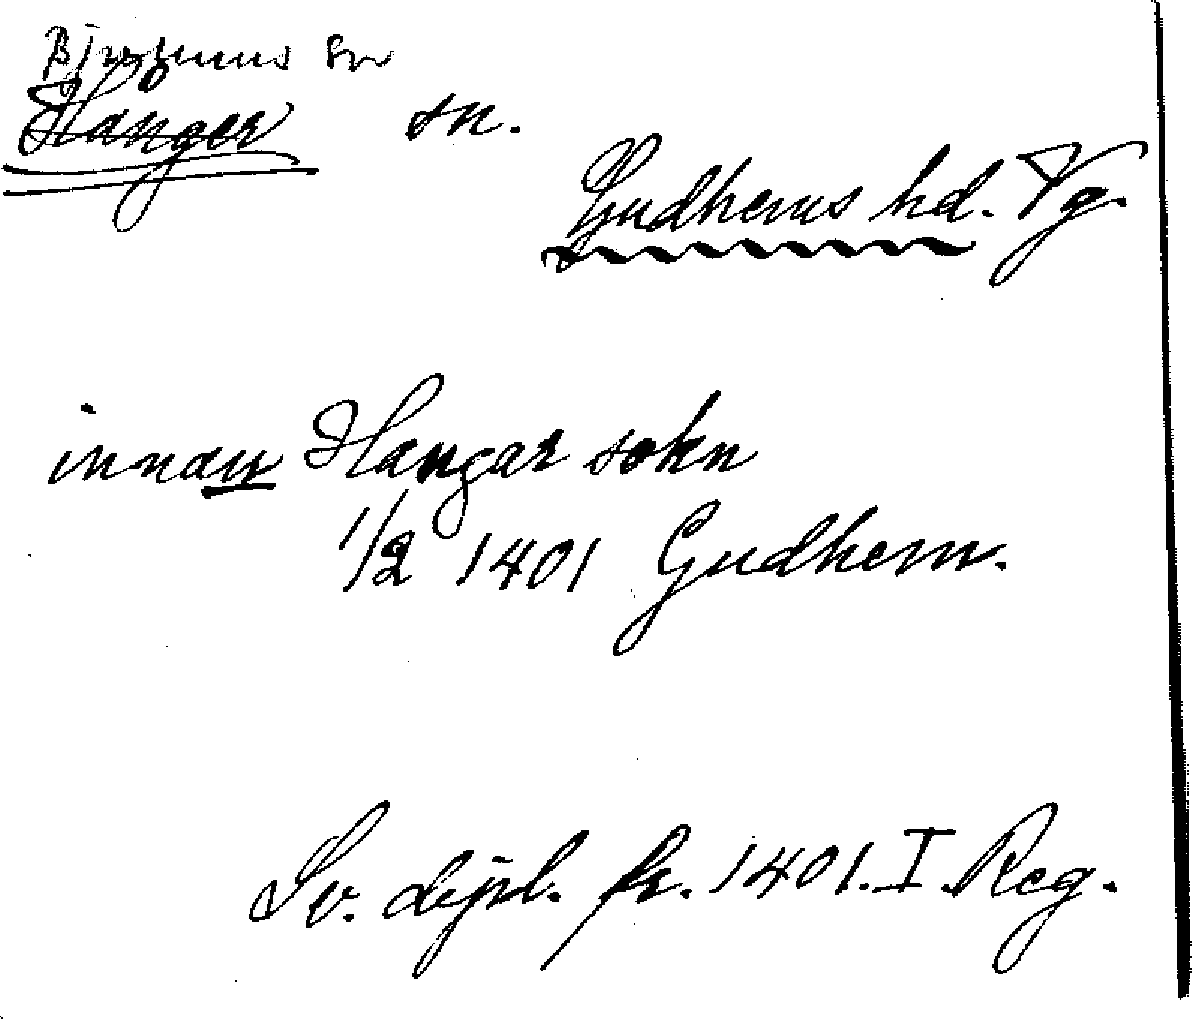 Bjurums sn
Hånger sn.
Gudhems hd. Vg.
innan Hangar sokn
1/2 1401 Gudhem.
Sv. dipl. fr. 1401. I. Reg.